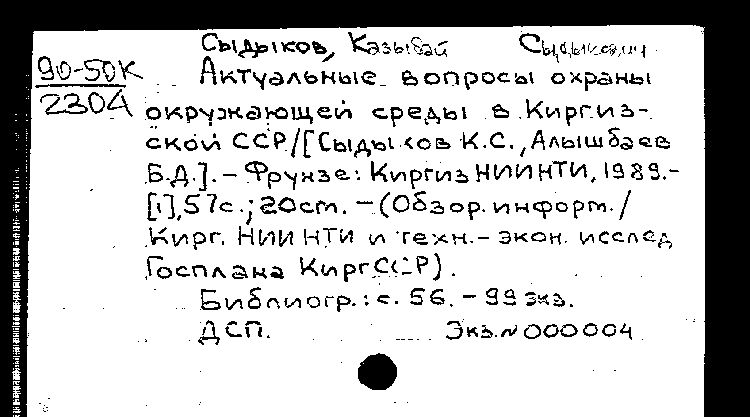 Сыдыков, Казыбай Сыдыкович
90-50К
2304
Актуальные вопросы охраны
окружающей среды в Киргиз-
ской ССР/[Сыдыков К.С., Алышбаев
Б.Д.]. – Фрунзе: КиргизНИИНТИ, 1989.-
[1], 57с.; 20см. – (Обзор. информ./
Кирг. НИИНТИ и техн.-экон. исслед
Госплана КиргССР).
Библиогр.: с. 56. – 99 экз.
ДСП. Экз.№000004